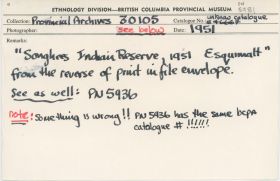 ETHNOLOGY DIVISION—BRITISH COLUMBIA PROVINCIAL MUSEUM
Collection: Provincial Archives 30105 Catalogue No.
Photographer: see below Date: 1951
Remarks:
"Songhees Indian Reserve, 1951 Esquimalt"
from the reverse of print in file envelope.
See as well: PN 5936
note: Something is wrong!! PN 5936 has the same BCPA
catalogue # !!!!!!